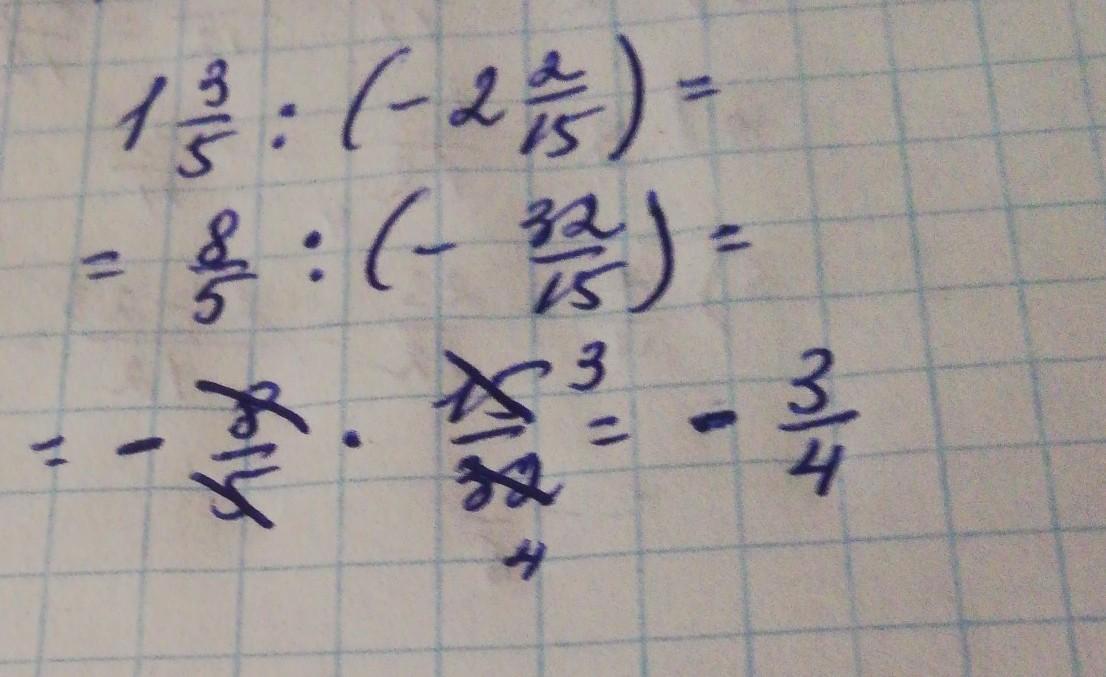 1 3/5 : (- 2 2/15) =
= 8/5 : (- 32/15) =
= - 8/5 · 15/32 3 4 = - 3/4